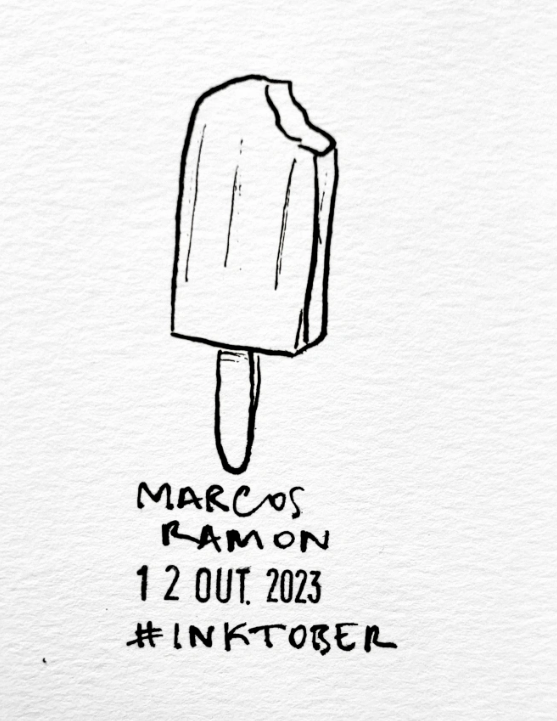 MARCOS
RAMON
12 OUT. 2023
#INKTOBER